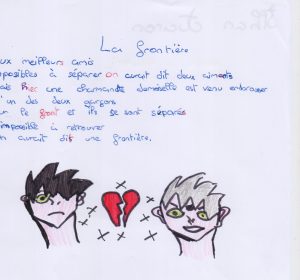 La frontière
ux meilleurs amis
possibles à séparer on aurait dit deux aimants
ais hier une charmante demoiselle est venu embrasser
un des deux garçons
ur le front et ils se sont séparés
impossible à retrouver
n aurait dit une frontière.